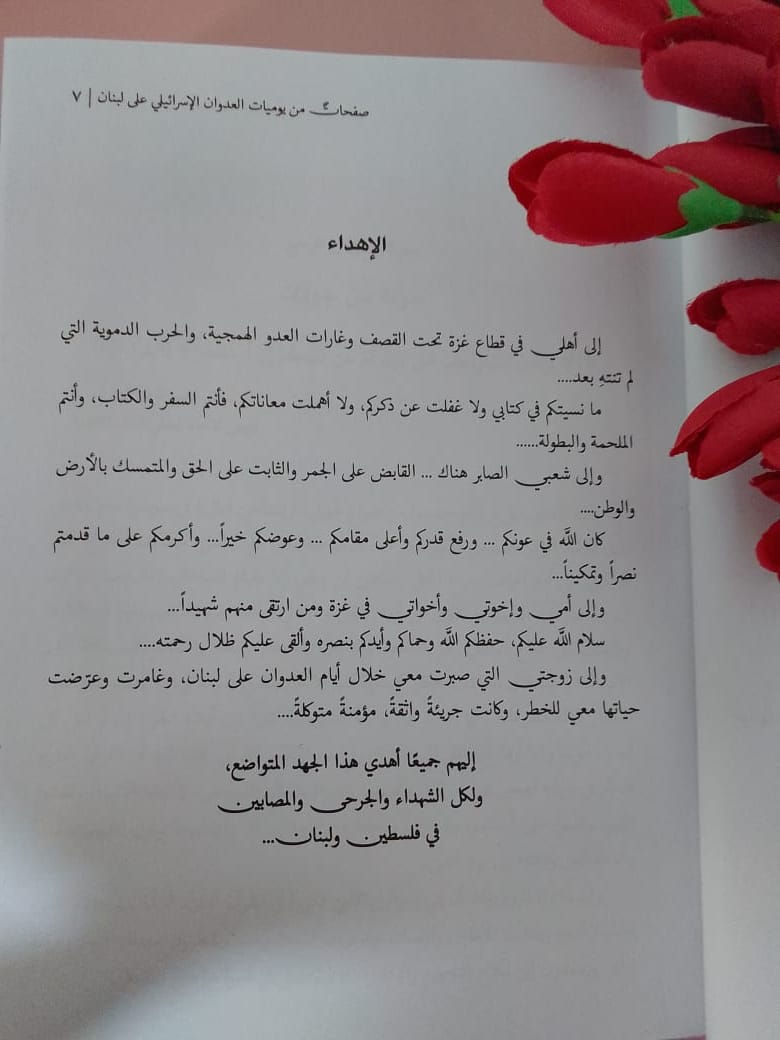 صفحاتٌ من يوميات العدوان الإسرائيلي على لبنان | ٧
الإهداء
إلى أهلي في قطاع غزة تحت القصف وغارات العدو الهمجية، والحرب الدموية التي
لم تنتهِ بعد....
ما نسيتكم في كتابي ولا غفلت عن ذكركم، ولا أهملت معاناتكم، فأنتم السفر والكتاب، وأنتم
الملحمة والبطولة......
وإلى شعبي الصابر هناك ... القابض على الجمر والثابت على الحق والمتمسك بالأرض
والوطن....
كان الله في عونكم ... ورفع قدركم وأعلى مقامكم ... وعوضكم خيراً... وأكرمكم على ما قدمتم
نصراً وتمكيناً...
وإلى أمي وإخوتي وأخواتي في غزة ومن ارتقى منهم شهيداً...
سلام الله عليكم، حفظكم الله وحماكم وأيدكم بنصره وألقى عليكم ظلال رحمته....
وإلى زوجتي التي صبرت معي خلال أيام العدوان على لبنان، وغامرت وعرّضت
حياتها معي للخطر، وكانت جريئةً واثقةً، مؤمنةً متوكلةً....
إليهم جميعًا أهدي هذا الجهد المتواضع،
ولكل الشهداء والجرحى والمصابين
في فلسطين ولبنان...